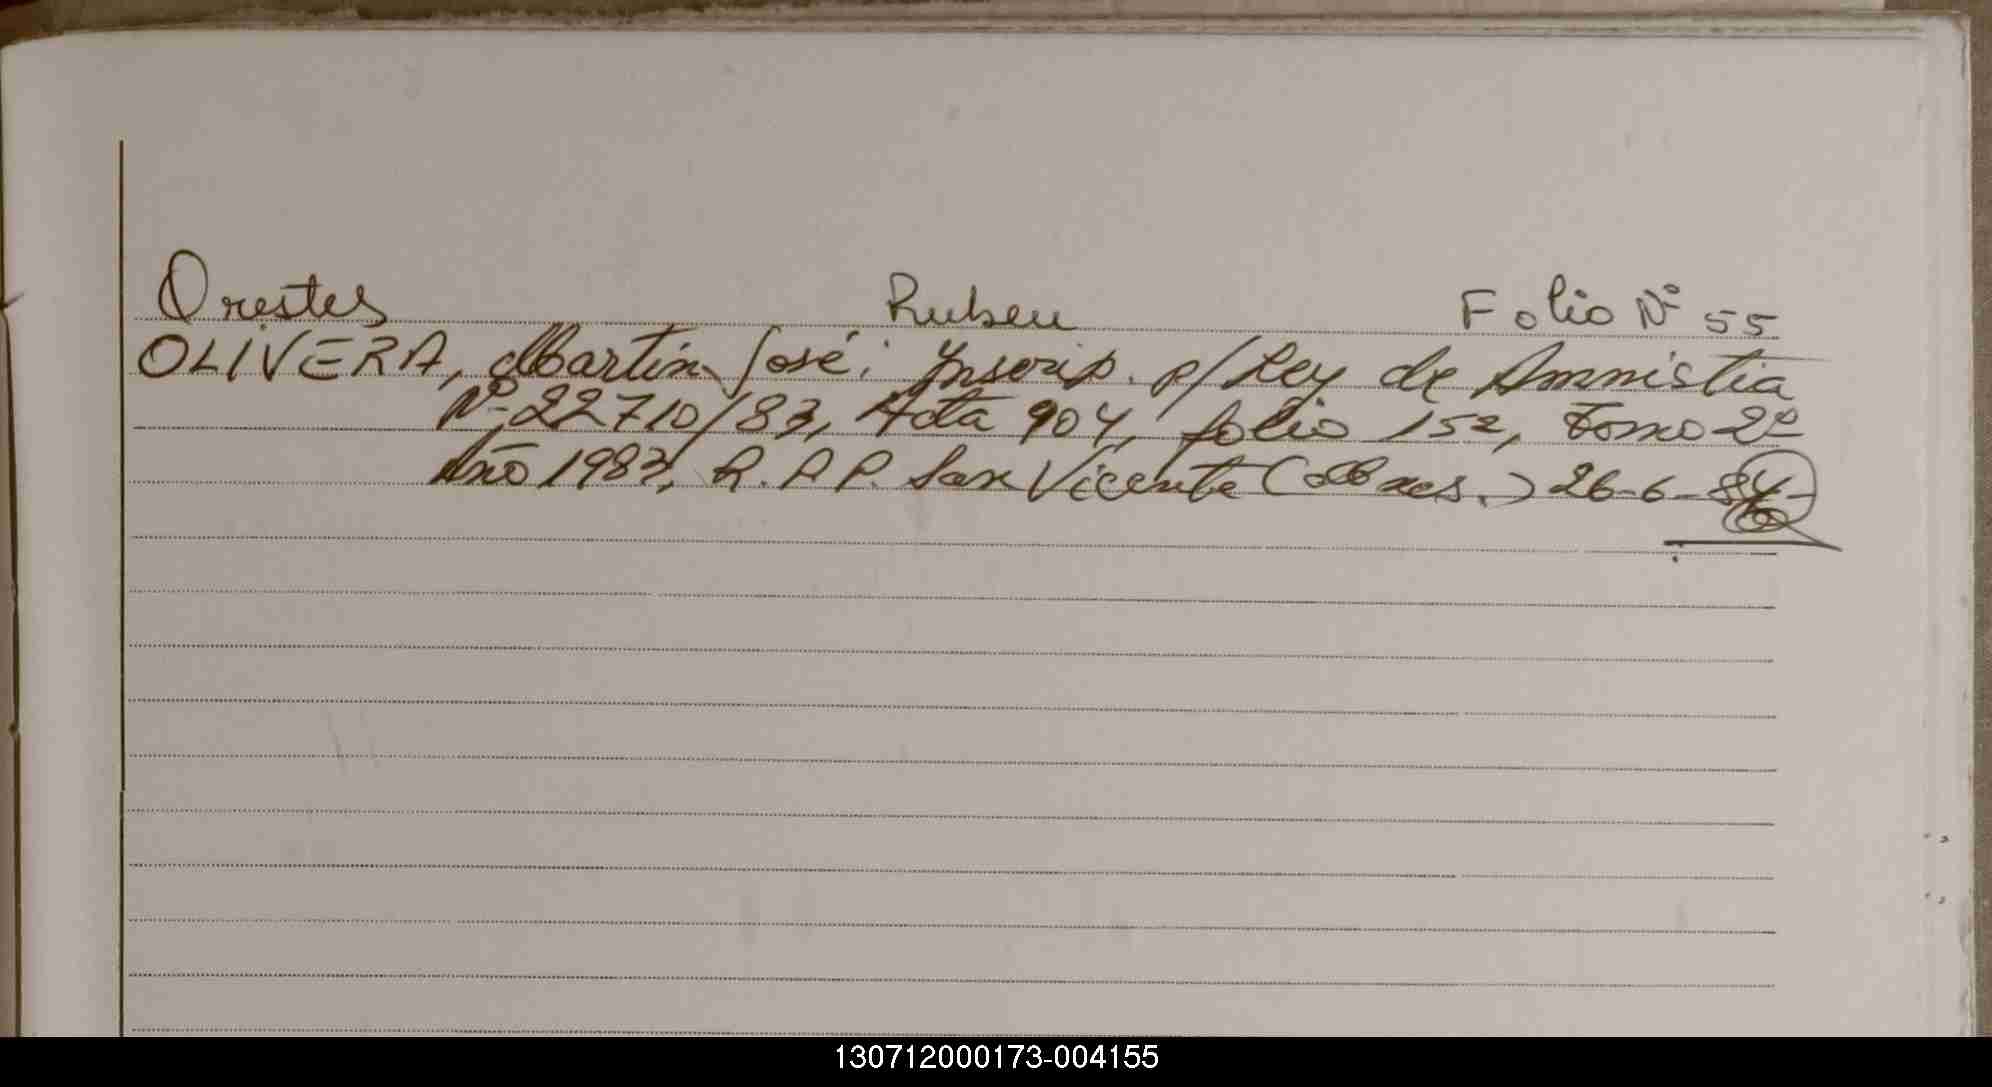 Orestes Ruben Folio Nº 55
OLIVERA, Martín José: Inscrip. p/ Ley de Amnistia
Nº 22710/83, Acta 904, folio 152, Tomo 2º
Año 1983, R.P.P. San Vicente (Mnes.) 26-6-84-
130712000173-004155